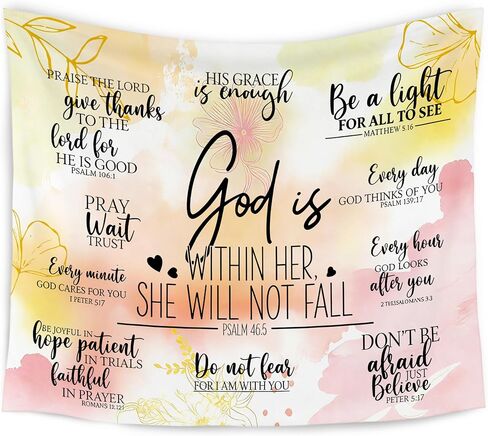 PRAISE THE LORD
give thanks
TO THE
lord for
HE IS GOOD
PSALM 106:1
HIS GRACE
is enough
Be a light
FOR ALL TO SEE
MATTHEW 5:16
God is
WITHIN HER,
SHE WILL NOT FALL
PSALM 46:5
PRAY
Wait
TRUST
Every day
GOD THINKS OF YOU
PSALM 139:17
Every minute
GOD CARES FOR YOU
1 PETER 5:17
Every hour
GOD LOOKS
after you
2 THESSALOMANS 3:3
BE JOYFUL IN
hope patient
IN TRIALS
faithful
IN PRAYER
ROMANS 12:121
Do not fear
FOR I AM WITH YOU
DON'T BE
afraid
JUST
Believe
PETER 5:17